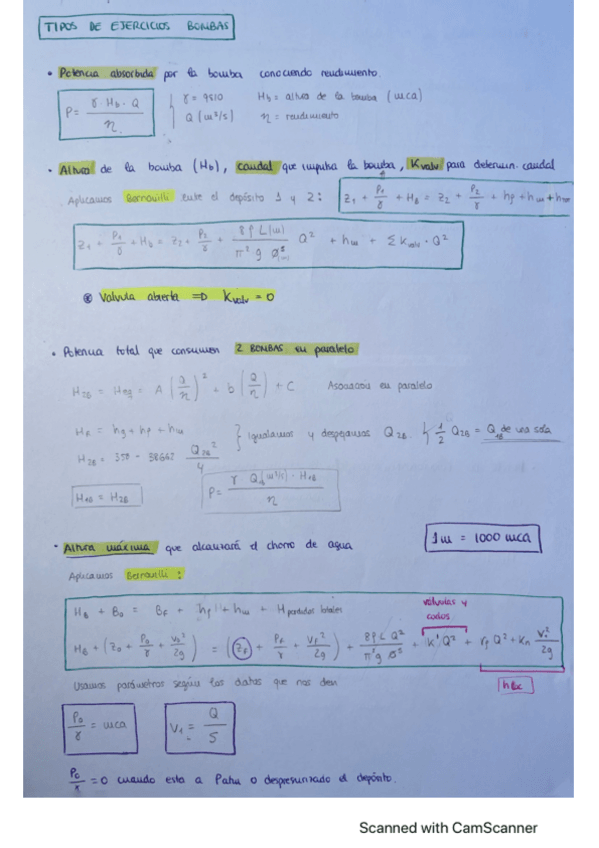 TIPOS DE EJERCICIOS BOMBAS
• Potencia absorbida por la bomba conociendo rendimiento.
P = γ · Hb · Q / η
γ = 9810 Hb = altura de la bomba (mca)
Q (m³/s) η = rendimiento
• Altura de la bomba (Hb), caudal que impulsa la bomba, Kvalv para determin. caudal
Aplicamos Bernouilli entre el depósito 1 y 2: Z₁ + P₁/γ + HB = Z₂ + P₂/γ + hp + hm + h
Z₁ + P₁/γ + HB = Z₂ + P₂/γ + 8 f L(m) / π² g Ø⁵(m) Q² + hm + Σ Kvalv · Q²
⊛ Valvula abierta ⇒ Kvalv = 0
• Potencia total que consumen 2 BOMBAS en paralelo
H2B = Heq = A (Q/n)² + b (Q/n) + C Asociación en paralelo
HR = hg + hp + hm
Igualamos y despejamos Q2B. ½ Q2B = Q1B de una sola
H2B = 350 - 38667 Q2B²/4
H1B = H2B
P = γ Q1B(m³/s) · H1B / η
• Altura máxima que alcanzará el chorro de agua
1m = 1000 mca
Aplicamos Bernouilli:
HB + B0 = BF + hf + hm + H perdidas totales
válvulas y codos
HB + (Z0 + P0/γ + V0²/2g) = (ZF + PF/γ + VF²/2g) + 8 f L Q² / π² g Ø⁵ + K' Q² + rf Q² + Kn V₁²/2g
Usamos parámetros según los datos que nos den
P0/γ = mca
V₁ = Q/S
P0/γ = 0 cuando esta a Patm o despresurizado el depósito.
Scanned with CamScanner